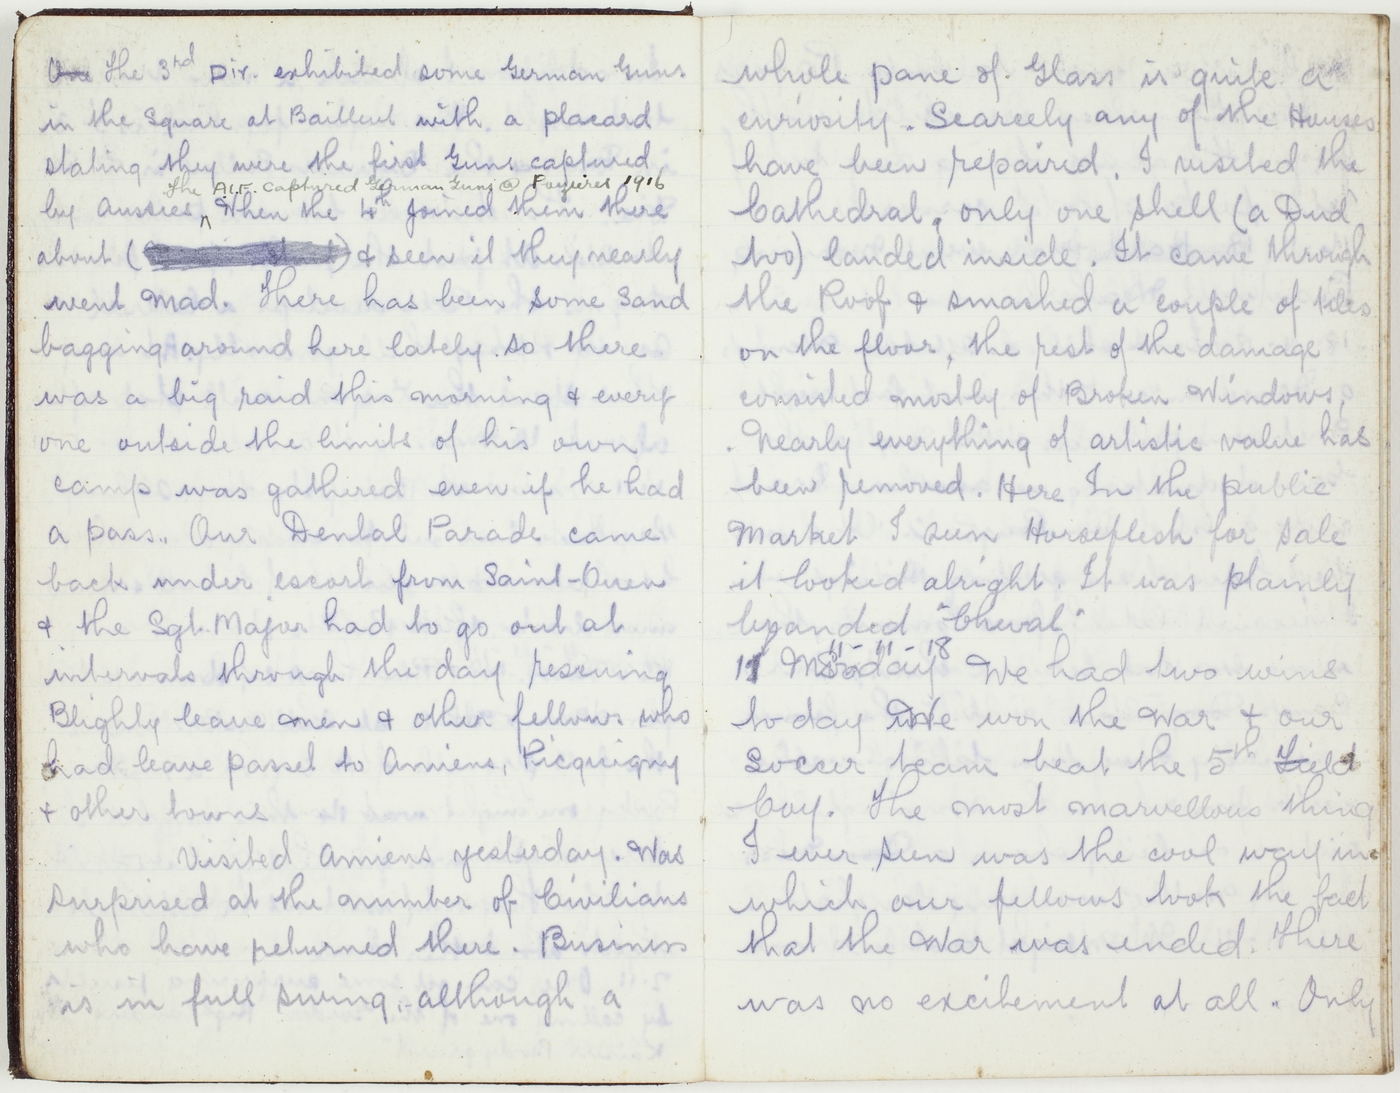 One the 3rd Div. exhibited some German Guns
in the Square at Bailleul with a placard
stating they were the first Guns captured
The A.I.F. captured German Guns @ Pozieres 1916
by Aussies. When the 4th joined them there
about ( ) & seen it they nearly
went mad. There has been some Sand
bagging around here lately. so there
was a big raid this morning & every
one outside the limits of his own
camp was gathered even if he had
a pass. Our Dental Parade came
back under escort from Saint-Ouen
& the Sgt. Major had to go out at
intervals through the day rescuing
Blighty leave men & other fellows who
had leave passes to Amiens, Picquigny
& other towns
Visited Amiens yesterday. Was
surprised at the number of Civilians
who have returned there. Business
is in full swing, although a
whole pane of Glass is quite a
curiosity. Scarcely any of the Houses
have been repaired. I visited the
Cathedral, only one shell (a Dud
too) landed inside. It came through
the Roof & smashed a couple of tiles
on the floor, the rest of the damage
consisted mostly of Broken Windows.
Nearly everything of artistic value has
been removed. Here In the public
Market I seen Horseflesh for sale
it looked alright. It was plainly
branded "Cheval"
11-11-18
11 Monday We had two wins
today We won the War & our
Soccer team beat the 5th Field
Coy. The most marvellous thing
I ever seen was the cool way in
which our fellows took the fact
that the War was ended. There
was no excitement at all. Only